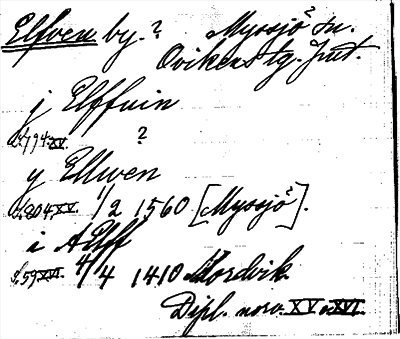 Elfven by.? Myssjö? sn.
Ovikens tg. Jmt.
j Elffuin
794.XV. ?
y Ellwen
804.XV. 1/2 1560 [Myssjö?].
i AElff
59.XVI. 4/4 1410 Nordvik.
Dipl. norv. XV o. XVI.